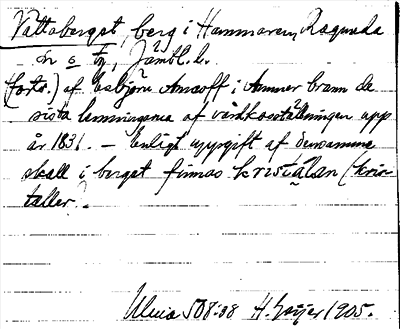 Vattaberget, berg i Hammaren, Ragunda
sn o tg, Jämtl. l.
(forts.) af Esbjörn Amcoff i Ammer bram de
sista lemningarna af vårdkasställningen upp
år 1831. — Enligt uppgift af densamme
skall i berget finnas kristálan (kris-
taller).
Ulma 508:08 H. Geijer 1905.